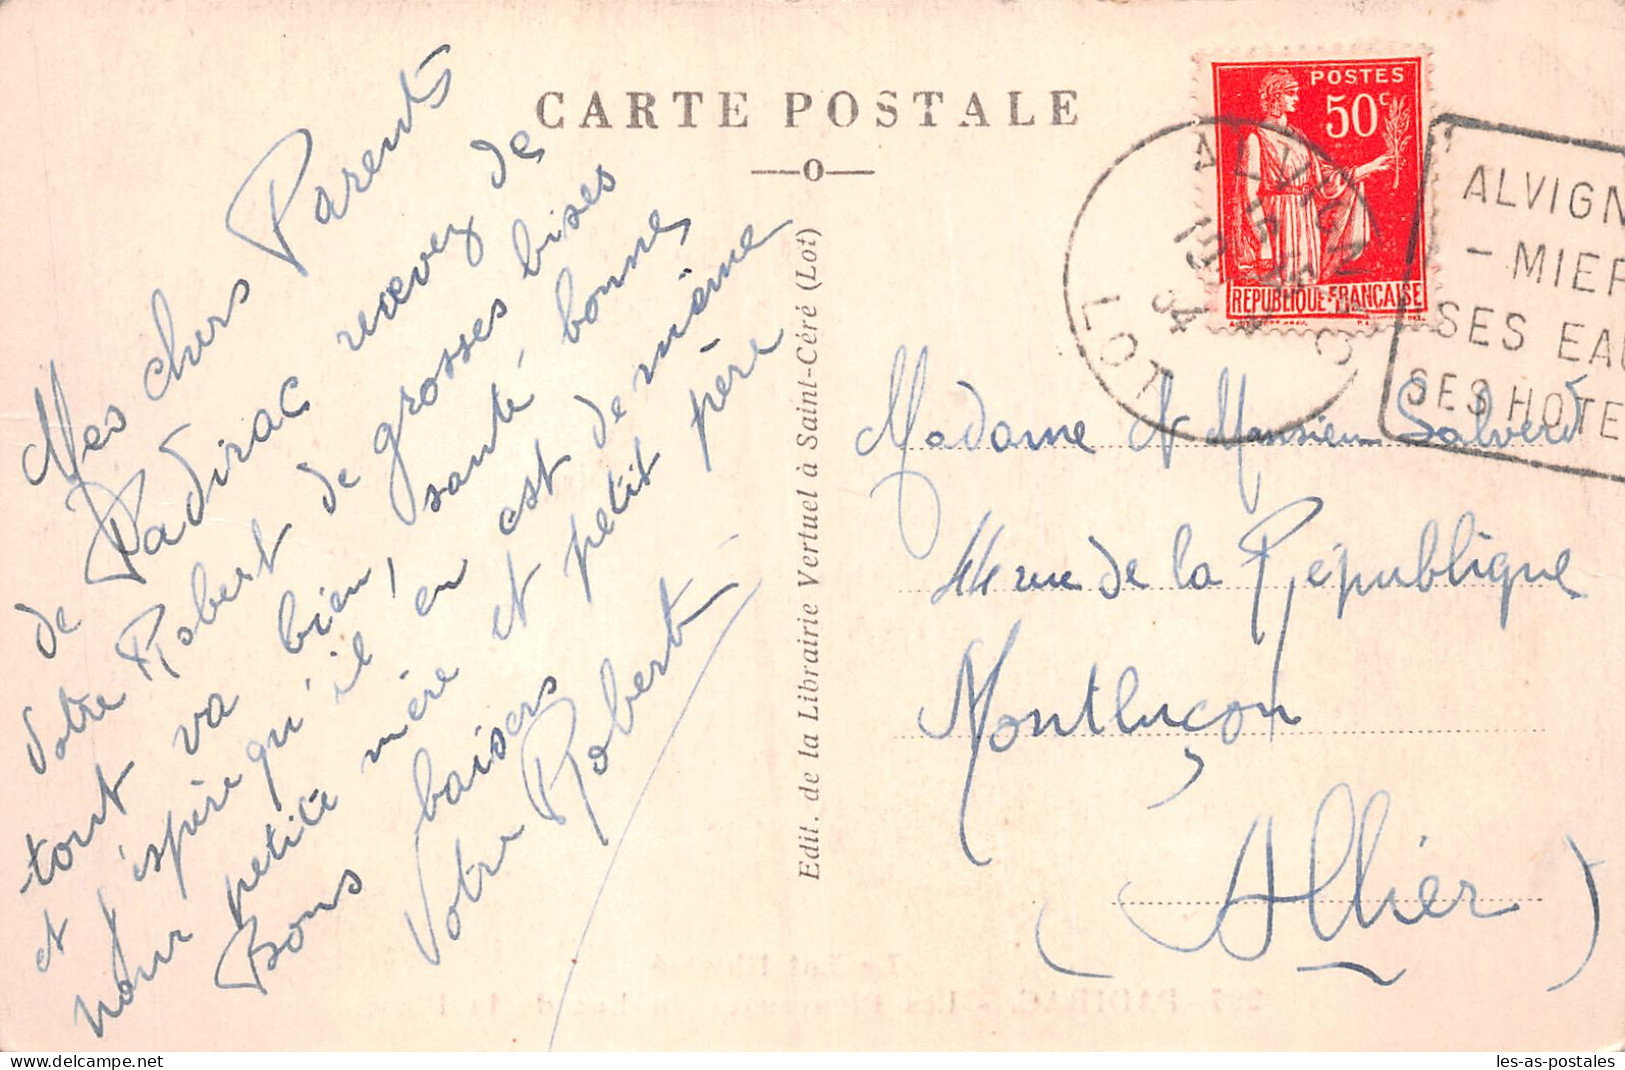 CARTE POSTALE
—O—
Mes chers Parents
de Padirac recevez de
votre Robert de grosses bises
tout va bien, santé bonne,
et j'espère qu'il en est de même
pour petite mère et petit père
Bons baisers
Votre Robert
Edit. de la Librairie Vertuel à Saint-Céré (Lot)
POSTES
50c
REPUBLIQUE FRANÇAISE
ALVIGNAC
34
LOT
ALVIGN
- MIER
SES EAU
SES HOTE
Madame & Monsieur
rue de la République
Montluçon
(Allier)
les-as-postales